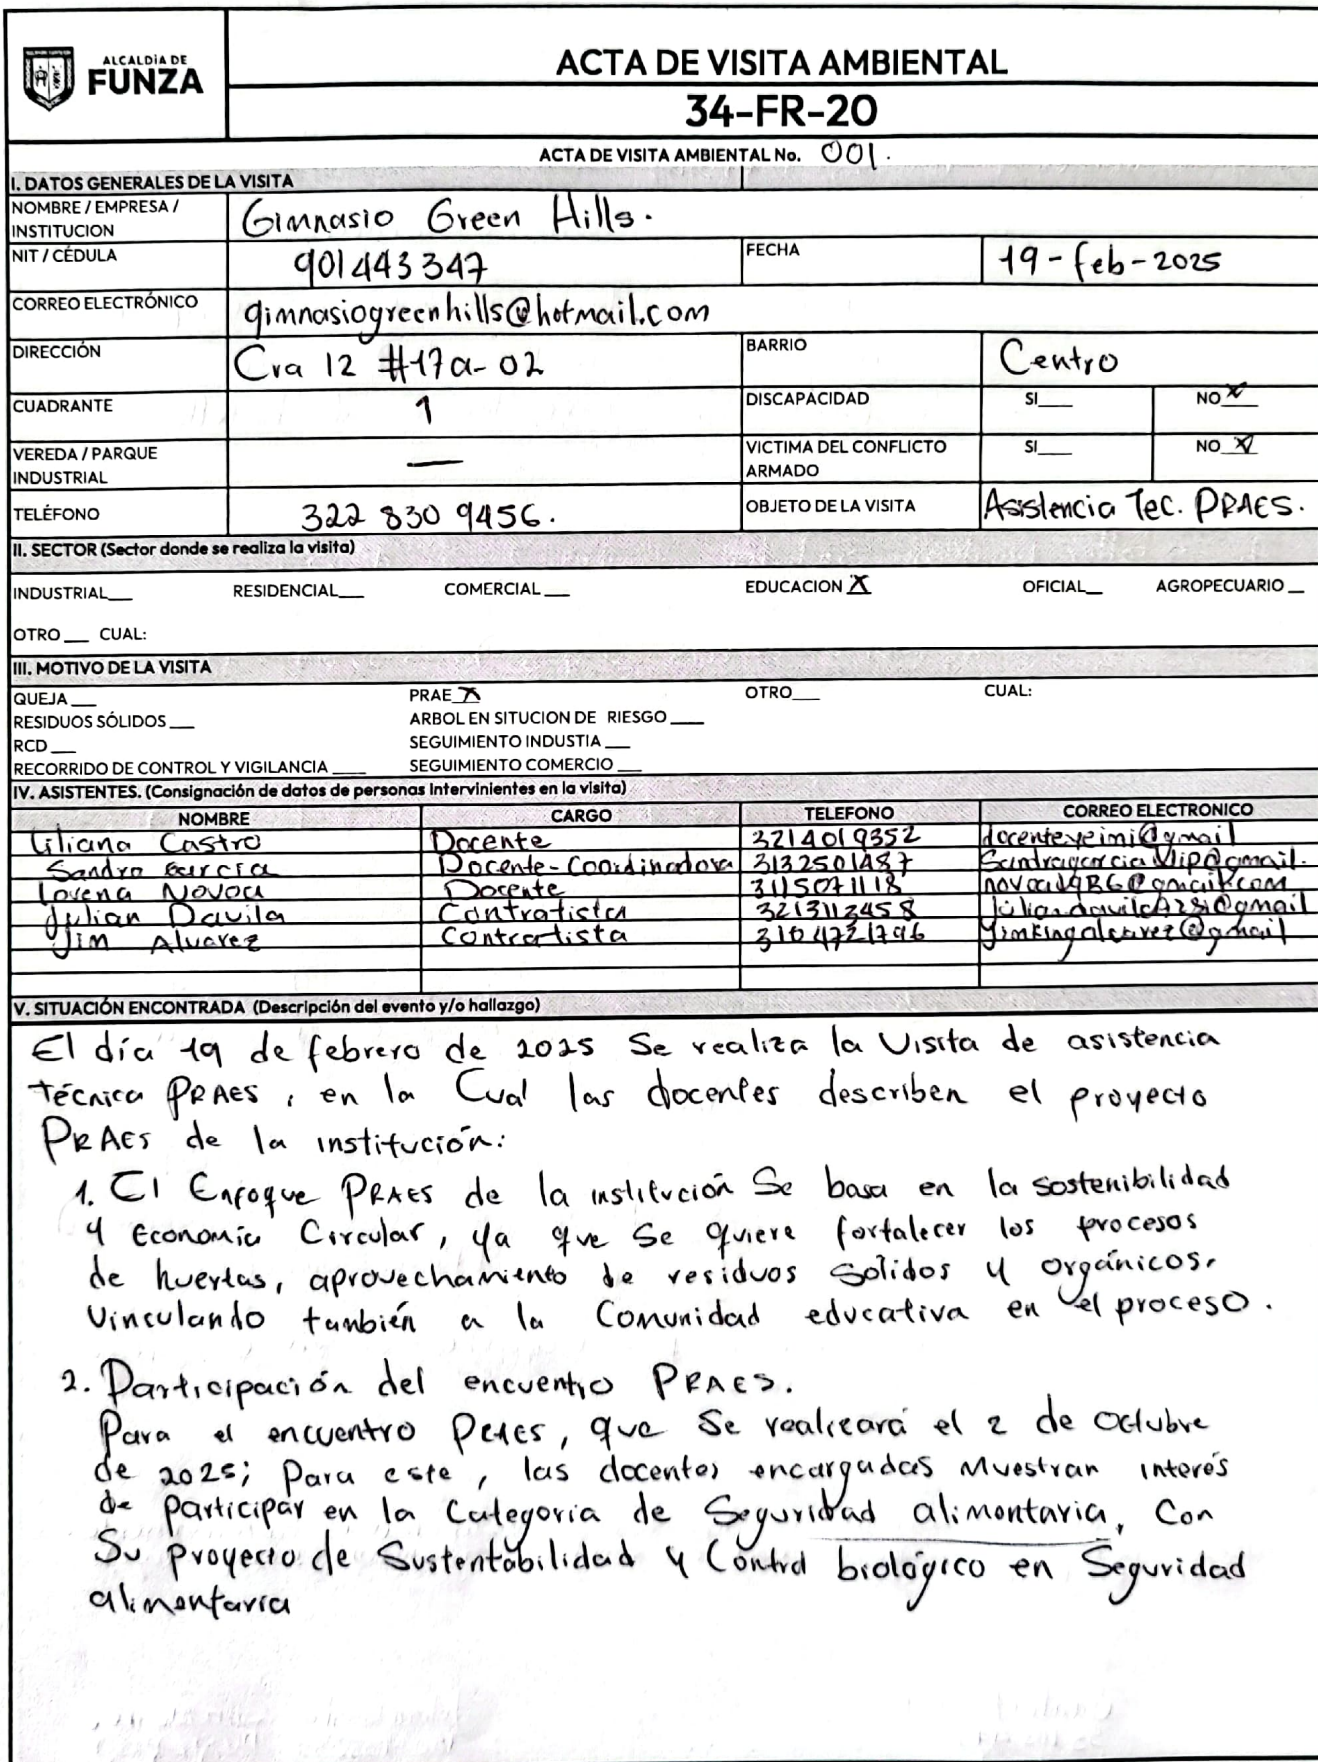 ALCALDÍA DE
FUNZA
ACTA DE VISITA AMBIENTAL
34-FR-20
ACTA DE VISITA AMBIENTAL No. 001.
I. DATOS GENERALES DE LA VISITA
NOMBRE / EMPRESA / INSTITUCION Gimnasio Green Hills.
NIT / CÉDULA 901443347 FECHA 19-feb-2025
CORREO ELECTRÓNICO gimnasiogreenhills@hotmail.com
DIRECCIÓN Cra 12 #17a-02 BARRIO Centro
CUADRANTE 1 DISCAPACIDAD SI___ NO X
VEREDA / PARQUE INDUSTRIAL — VICTIMA DEL CONFLICTO ARMADO SI___ NO X
TELÉFONO 322 830 9456. OBJETO DE LA VISITA Asistencia Tec. PRAES.
II. SECTOR (Sector donde se realiza la visita)
INDUSTRIAL__ RESIDENCIAL__ COMERCIAL__ EDUCACION X OFICIAL__ AGROPECUARIO__
OTRO__ CUAL:
III. MOTIVO DE LA VISITA
QUEJA__ PRAE X OTRO__ CUAL:
RESIDUOS SÓLIDOS__ ARBOL EN SITUCION DE RIESGO__
RCD__ SEGUIMIENTO INDUSTIA__
RECORRIDO DE CONTROL Y VIGILANCIA__ SEGUIMIENTO COMERCIO__
IV. ASISTENTES. (Consignación de datos de personas Intervinientes en la visita)
NOMBRE CARGO TELEFONO CORREO ELECTRONICO
Liliana Castro Docente 3214019352 docenteyeimi@gmail
Sandra Garcia Docente-Coordinadora 3132501487
Lorena Novoa Docente 3115071118
Julian Davila Contratista 3213113458
Jim Alvarez Contratista 3104721796
V. SITUACIÓN ENCONTRADA (Descripción del evento y/o hallazgo)
El día 19 de febrero de 2025 Se realiza la Visita de asistencia
Técnica PRAES, en la Cual las docentes describen el proyecto
PRAES de la institución:
1. El Enfoque PRAES de la institución Se basa en la sostenibilidad
y Economía Circular, ya que se quiere fortalecer los procesos
de huertas, aprovechamiento de residuos solidos y orgánicos,
Vinculando también a la Comunidad educativa en el proceso.
2. Participación del encuentro PRAES.
Para el encuentro PRAES, que Se realizará el 2 de Octubre
de 2025; Para este, las docentes encargadas Muestran interés
de participar en la Categoria de Seguridad alimentaria, Con
Su proyecto de Sustentabilidad y Control biológico en Seguridad
alimentaria